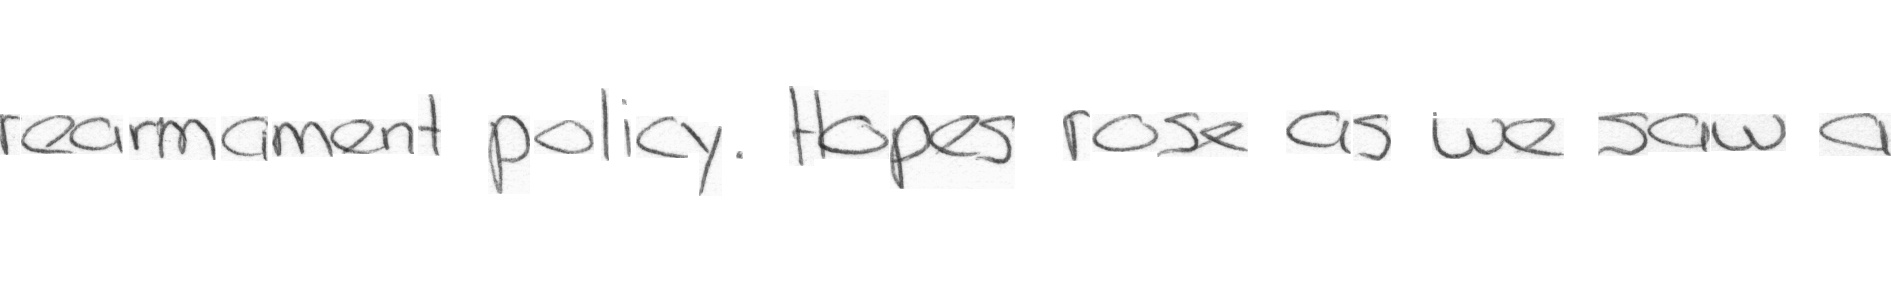 rearmament policy. Hopes rose as we saw a